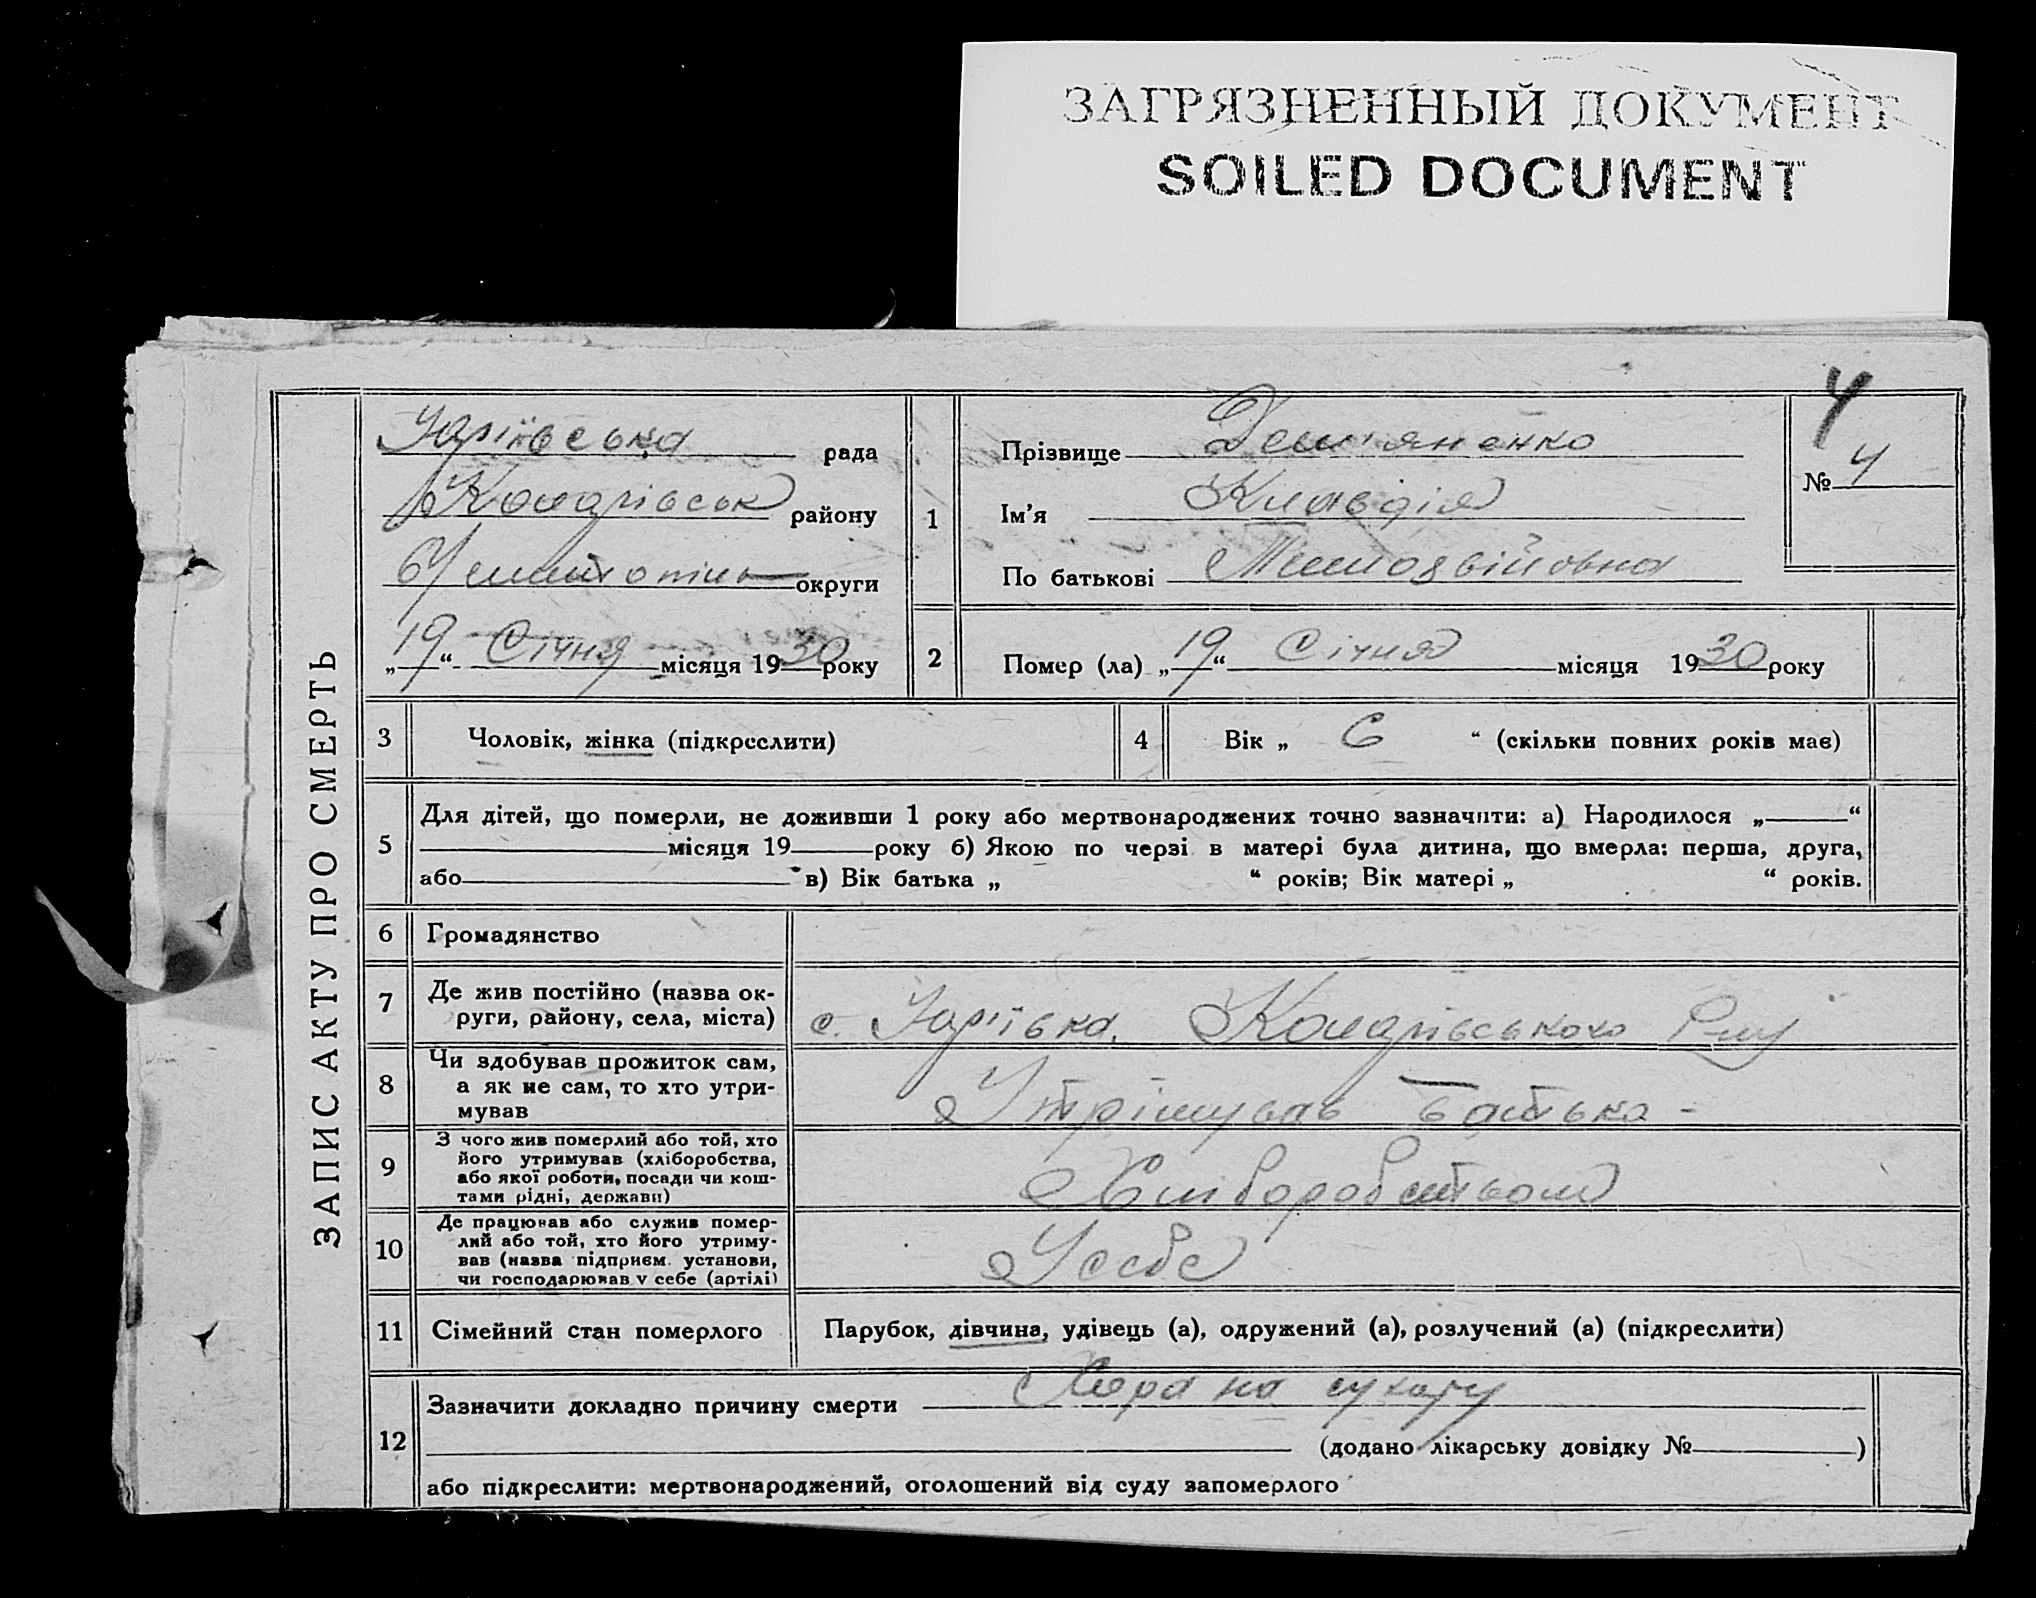 ЗАГРЯЗНЕННЫЙ ДОКУМЕНТ
SOILED DOCUMENT
ЗАПИС АКТУ ПРО СМЕРТЬ
Юріївська рада
Коларівськ району
округи
„19“ Січня місяця 1930 року
4
№ 4
1
Прізвище Дем'яненко
Ім'я Клавдія
По батькові
2
Помер (ла) „19“ Січня місяця 1930 року
3 Чоловік, жінка (підкреслити)
4 Вік „ 6 “ (скільки повних років має)
5 Для дітей, що померли, не доживши 1 року або мертвонароджених точно зазначити: а) Народилося „ “
місяця 19 року б) Якою по черзі в матері була дитина, що вмерла: перша, друга,
або в) Вік батька „ “ років; Вік матері „ “ років.
6 Громадянство
7 Де жив постійно (назва ок-
руги, району, села, міста) с. Юріївка. Коларівського Р-ну
8 Чи здобував прожиток сам,
а як не сам, то хто утри-
мував Утрімував батько -
9 З чого жив померлий або той, хто
його утримував (хліборобства,
або якої роботи, посади чи кош-
тами рідні, держави) Хліборобством
10 Де працював або служив помер-
лий або той, хто його утриму-
вав (назва підприєм. установи,
чи господарював у себе (артілі) У себе
11 Сімейний стан померлого Парубок, дівчина, удівець (а), одружений (а), розлучений (а) (підкреслити)
12 Зазначити докладно причину смерти Хора на сухоту
(додано лікарську довідку № )
або підкреслити: мертвонароджений, оголошений від суду запомерлого